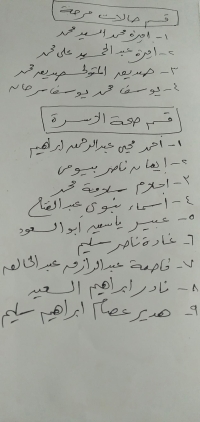 قسم حالات حرجة
١- اميرة محمد السيد محمد
٢- اميرة عبد الحميد على محمد
٣- صديقه المتولى صديقه محمد
٤- يوسف محمد يوسف سرحان
قسم صحة الأسرة
١- احمد محى عبد الرحمن ابراهيم
٢- إيمان ناصر بيومى
٣- احلام سلامة محمد
٤- أسماء نبوى عبد الفتاح
٥- عبير ياسين ابو السعود
٦- غادة ناصر سليم
٧- فاطمة عبد الرازق عبد الخالق
٨- نادر ابراهيم السعيد
٩- هدير عصام ابراهيم سليم